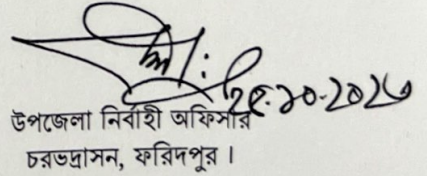 ২৫.১০.২০২৩
উপজেলা নির্বাহী অফিসার
চরভদ্রাসন, ফরিদপুর।